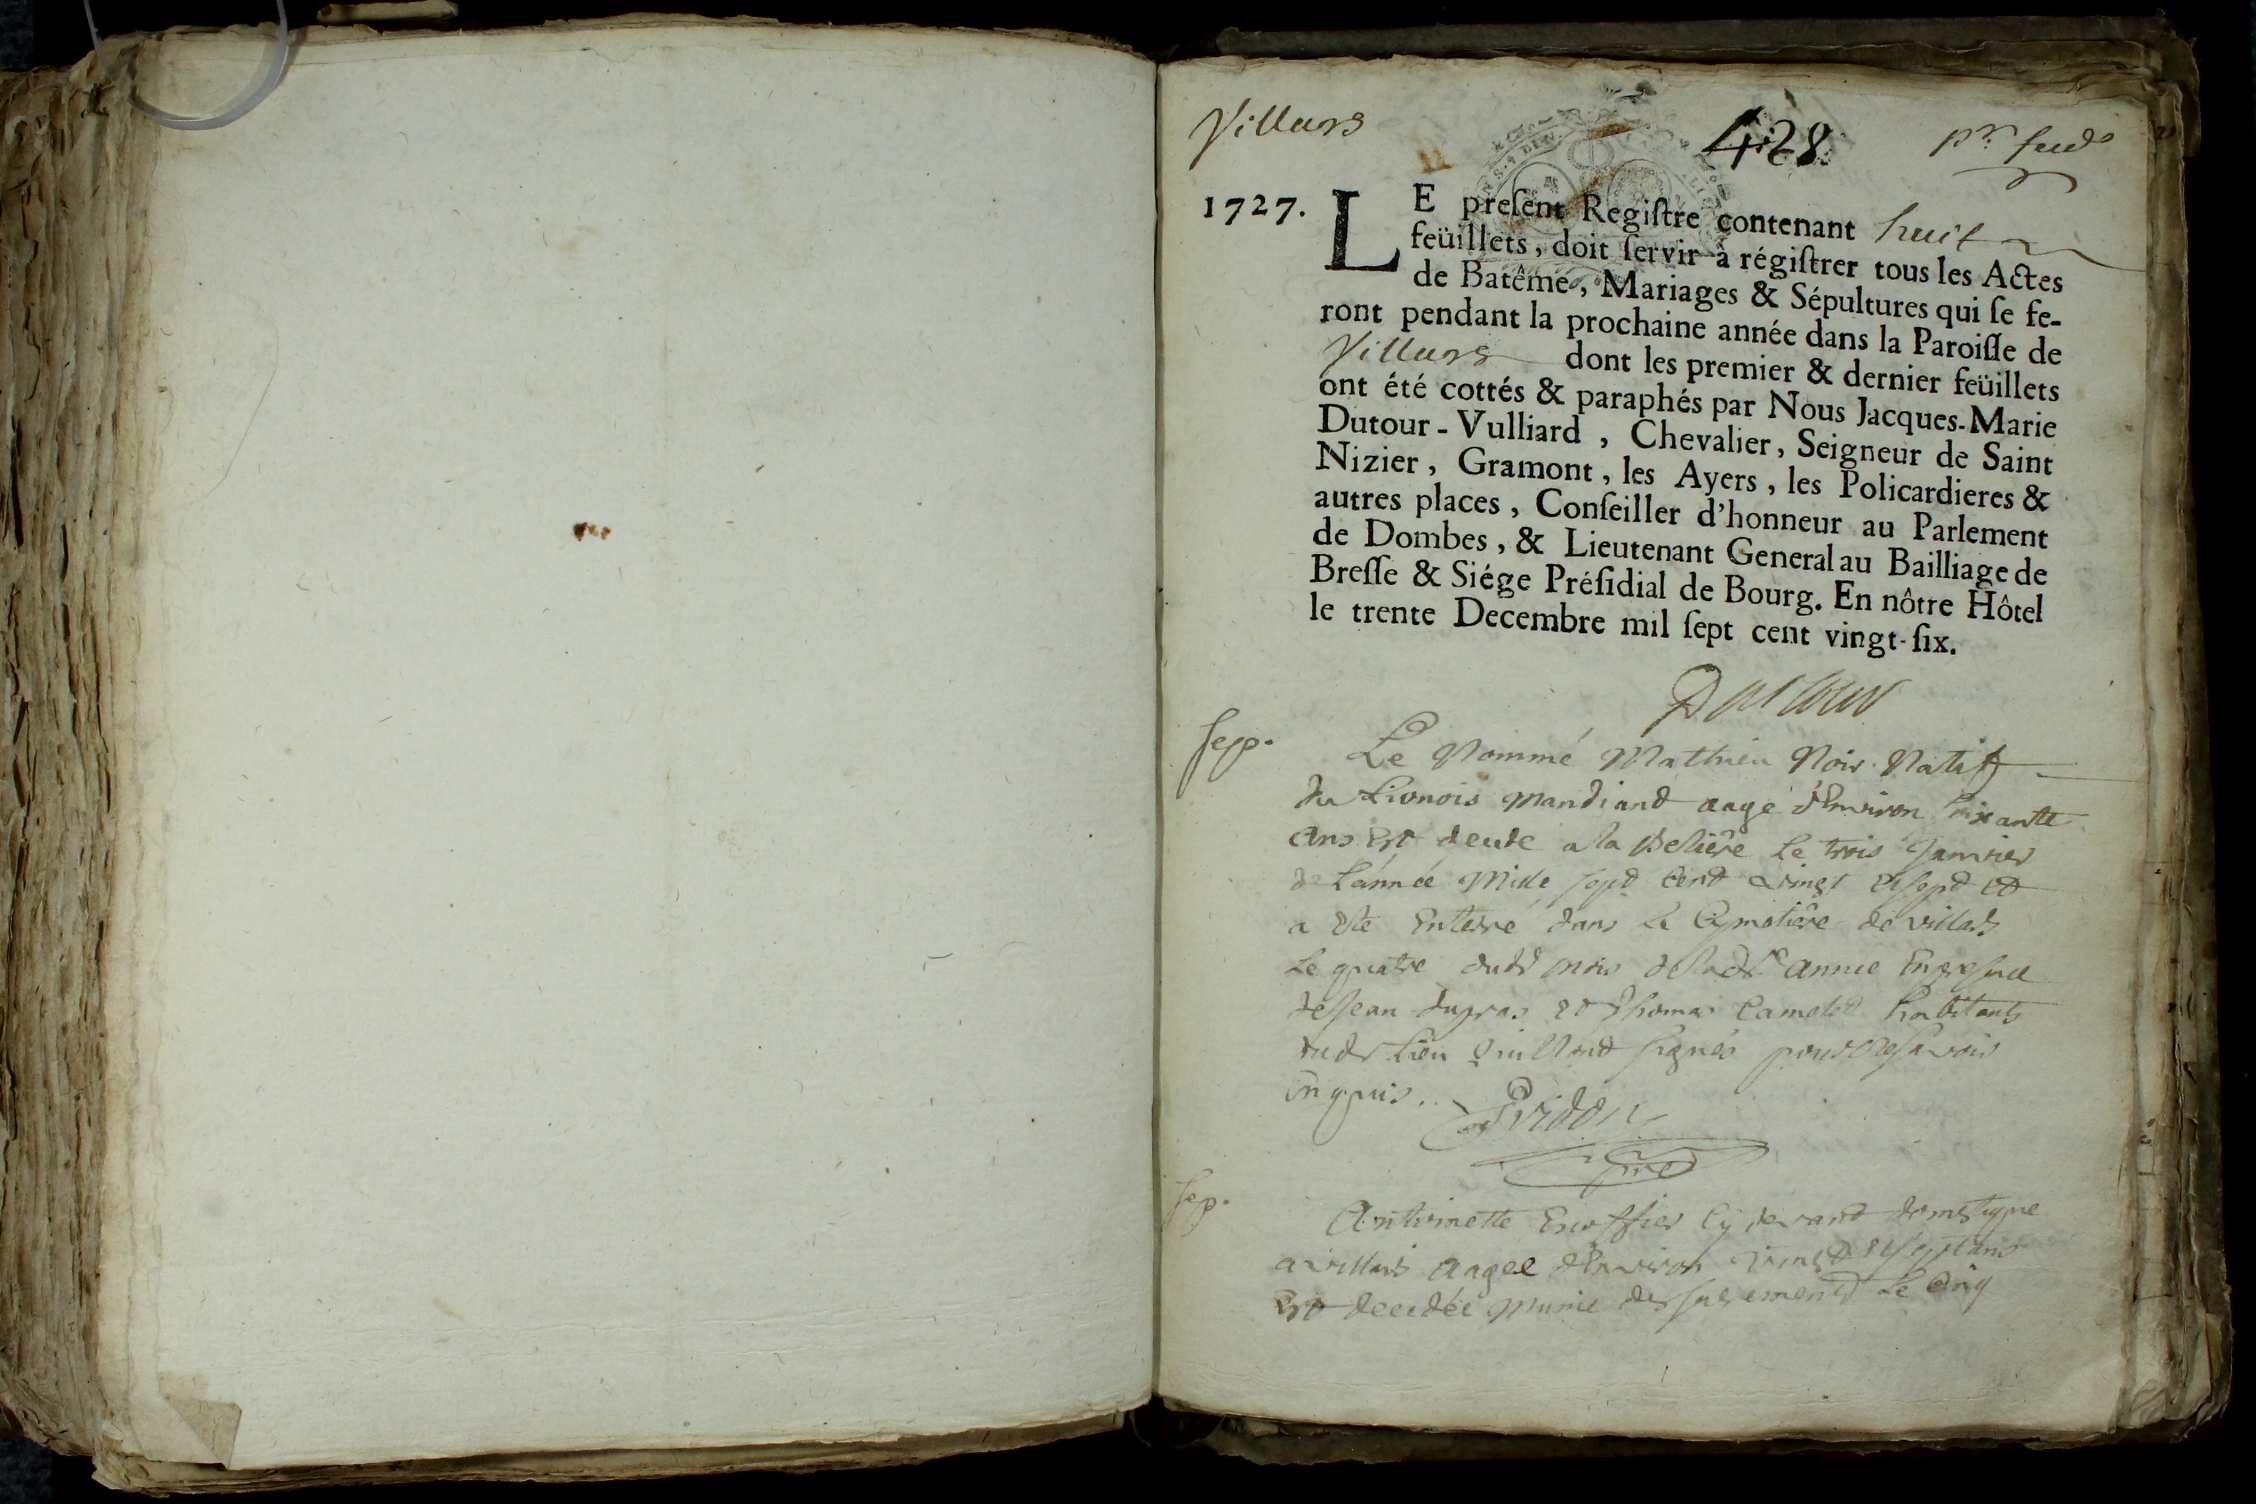 Villars
428
1727.
LE preſent Regiſtre contenant huit
feüillets, doit ſervir à régiſtrer tous les Actes
de Batême, Mariages & Sépultures qui ſe fe-
ront pendant la prochaine année dans la Paroiſſe de
Villars dont les premier & dernier feüillets
ont été cottés & paraphés par Nous Jacques-Marie
Dutour-Vulliard, Chevalier, Seigneur de Saint
Nizier, Gramont, les Ayers, les Policardieres &
autres places, Conſeiller d'honneur au Parlement
de Dombes, & Lieutenant General au Bailliage de
Breſſe & Siége Préſidial de Bourg. En nôtre Hôtel
le trente Decembre mil ſept cent vingt-ſix.
Dutour
sep.
Le Nommé Mathieu Noir Natif
du Lionois mandiand aagé d'Environ soixante
ans Est a la le trois Janvier
de l'année Mille sept cent vingt et sept et
a este Enterré dans le Cymetière de villars
le quatre dudt mois de ladte année En presence
de Jean dupras et Thomas habitants
dudt lieu qui n'ont signés pour ne sçavoir
Enquis.
Pridon
curé
sep.
Antoinette Escoffier cy devant domestique
a villars aagee d'Environ vingt et sept ans
Est decedée munie des sacrements le cinq